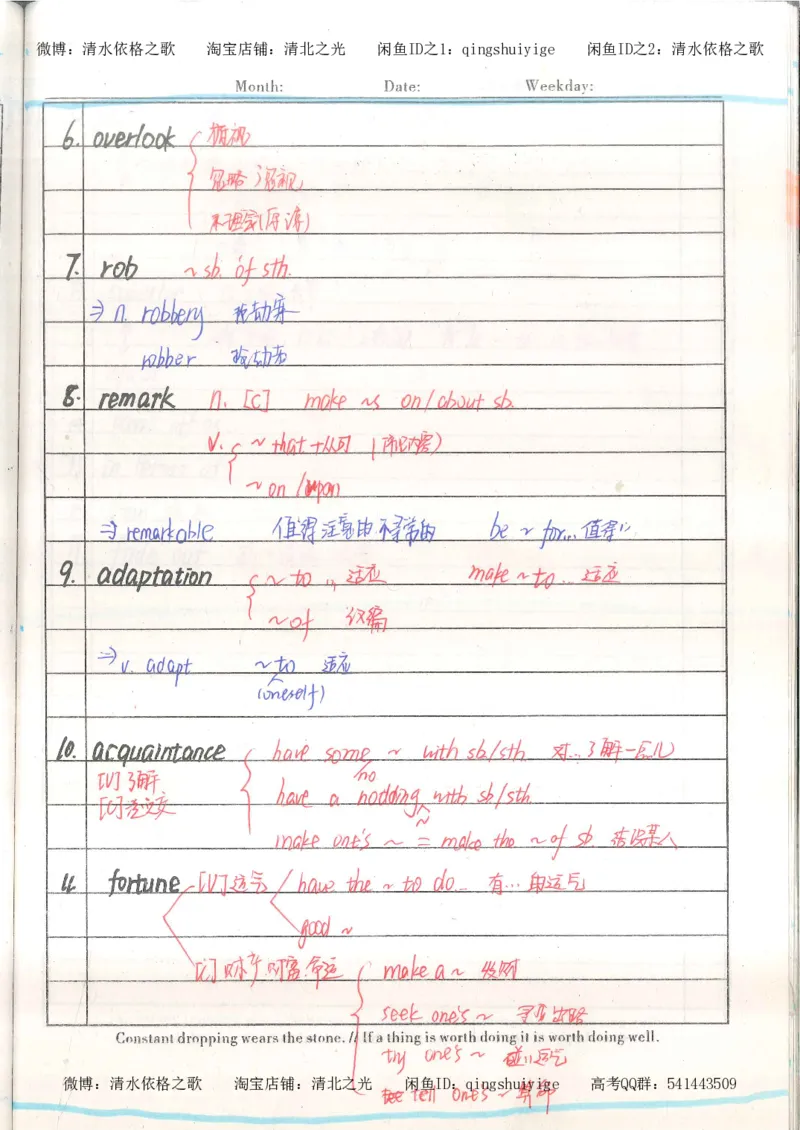 微博：清水依格之歌 淘宝店铺：清北之光 闲鱼ID之1：qingshuiyige 闲鱼ID之2：清水依格之歌
Month: Date: Weekday:
6. overlook 俯视
忽略 漠视
不理会(原谅)
7. rob ~ sb. of sth.
⇒ n. robbery 抢劫案
robber 抢劫者
8. remark n. [C] make ~s on/about sb.
v. ~ that +从句
~ on /upon
⇒ remarkable 值得注意的 不寻常的 be ~ for... 值得
9. adaptation ~ to ... 适应 make ~ to ... 适应
~ of 改编
⇒ v. adapt ~ to 适应
(oneself)
10. acquaintance have some ~ with sb/sth. 对...了解一点儿
[U]了解 no
[C] have a nodding ~ with sb/sth
make one's ~ = make the ~ of sb. 结识某人
11. fortune [U]运气 have the ~ to do... 有...的运气
good ~
[C] 财产 财富 命运 make a ~ 发财
seek one's ~ 寻找出路
Constant dropping wears the stone. // If a thing is worth doing it is worth doing well.
try one's ~ 碰运气
微博：清水依格之歌 淘宝店铺：清北之光 闲鱼ID：qingshuiyige 高考QQ群：541443509
tell one's ~ 算命